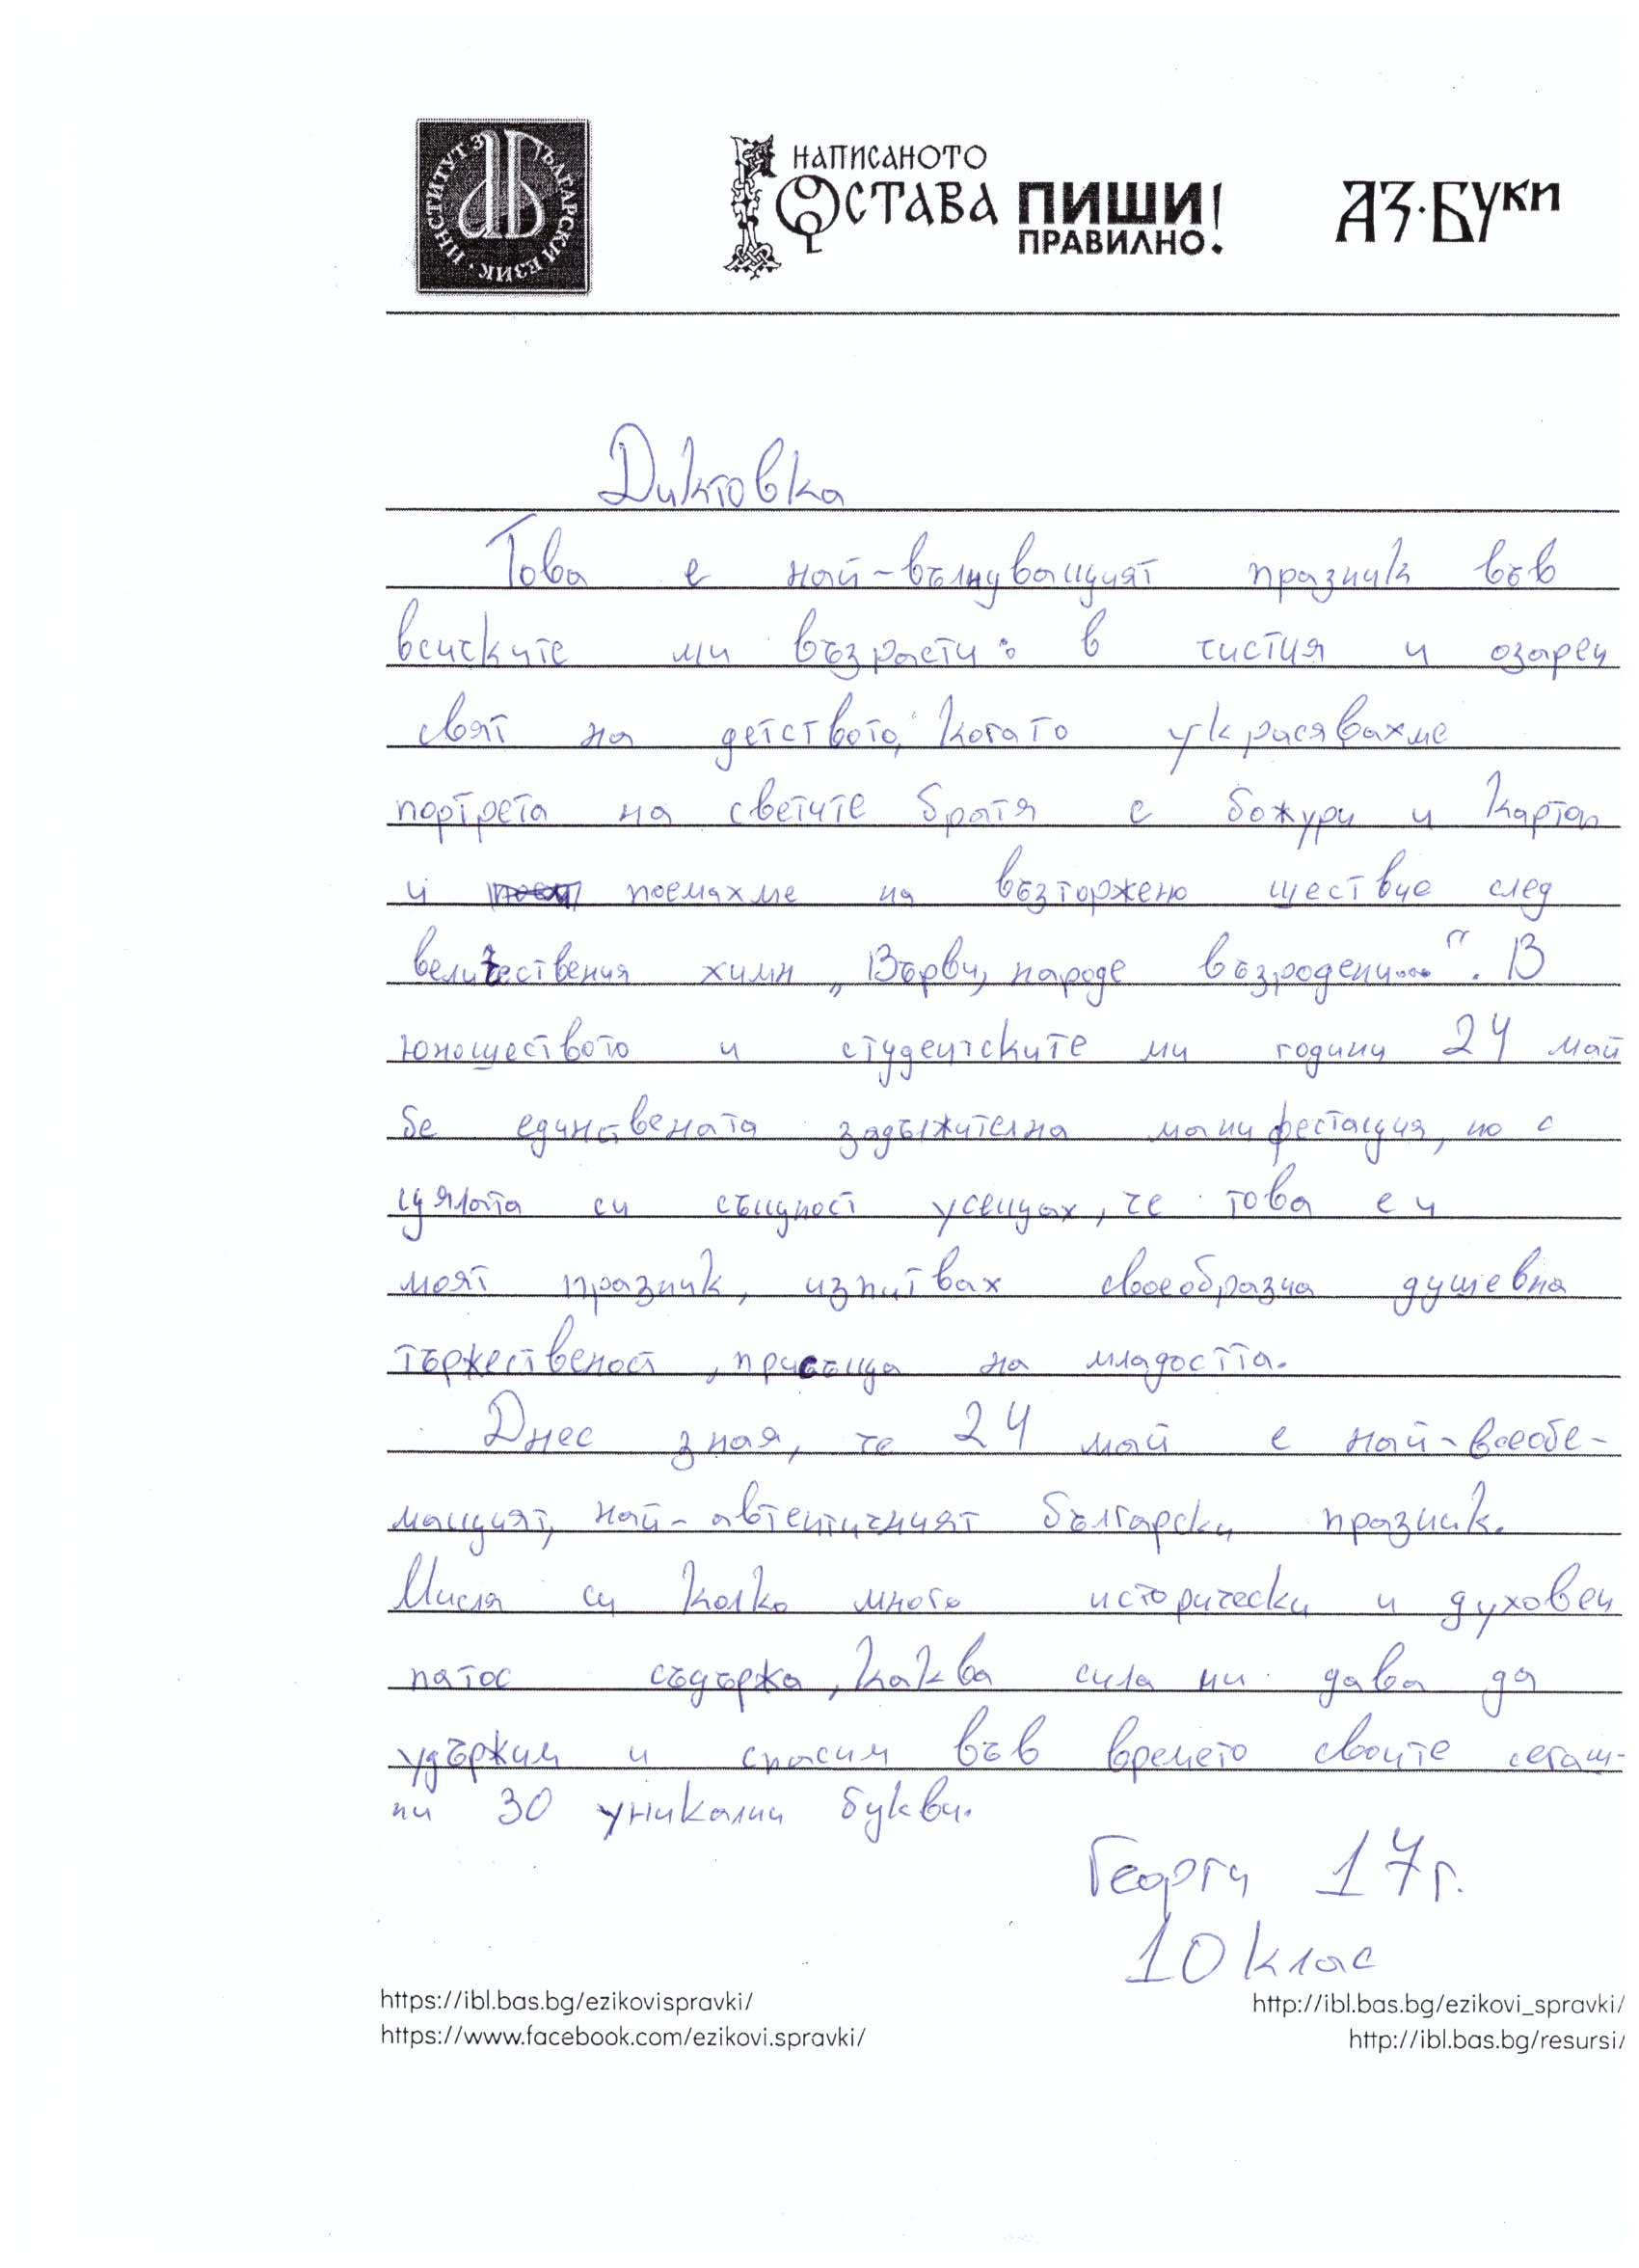 ИНСТИТУТ ЗА БЪЛГАРСКИ ЕЗИК
НАПИСАНОТО
ОСТАВА ПИШИ!
ПРАВИЛНО!
АЗ·БУКИ
Диктовка
Това е най-вълнуващият празник във
всичките ми възрасти: в чистия и озарен
свят на детството, когато украсявахме
портрета на светите братя с божури и картоп
и поемахме на възторжено шествие след
величествения химн „Върви, народе възродени...". В
юношеството и студентските ми години 24 май
бе единствената задължителна манифестация, но с
цялата си същност усещах, че това е и
моят празник, изпитвах своеобразна душевна
тържественост, присъща на младостта.
Днес зная, че 24 май е най-всеобе-
мащият, най-автентичният български празник.
Мисля си колко много исторически и духовен
патос съдържа, каква сила ни дава да
удържим и спасим във времето своите сегаш-
ни 30 уникални букви.
Георги 17г.
10 клас
https://ibl.bas.bg/ezikovispravki/ http://ibl.bas.bg/ezikovi_spravki/
https://www.facebook.com/ezikovi.spravki/ http://ibl.bas.bg/resursi/